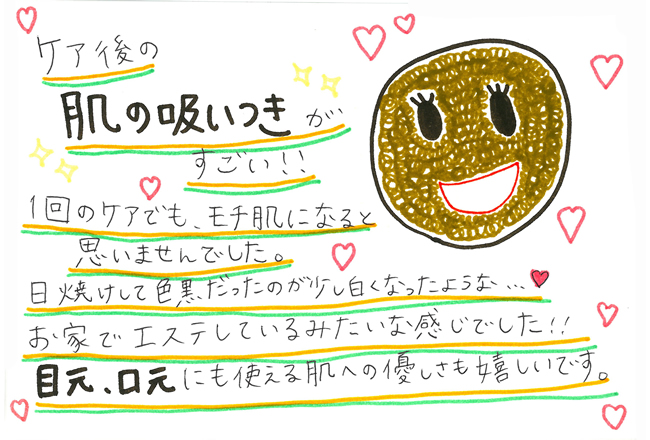 ケア後の
肌の吸いつきが
すごい!!
1回のケアでも、モチ肌になると
思いませんでした。
日焼けして色黒だったのが少し白くなったような…
お家でエステしているみたいな感じでした!!
目元、口元にも使える肌への優しさも嬉しいです。